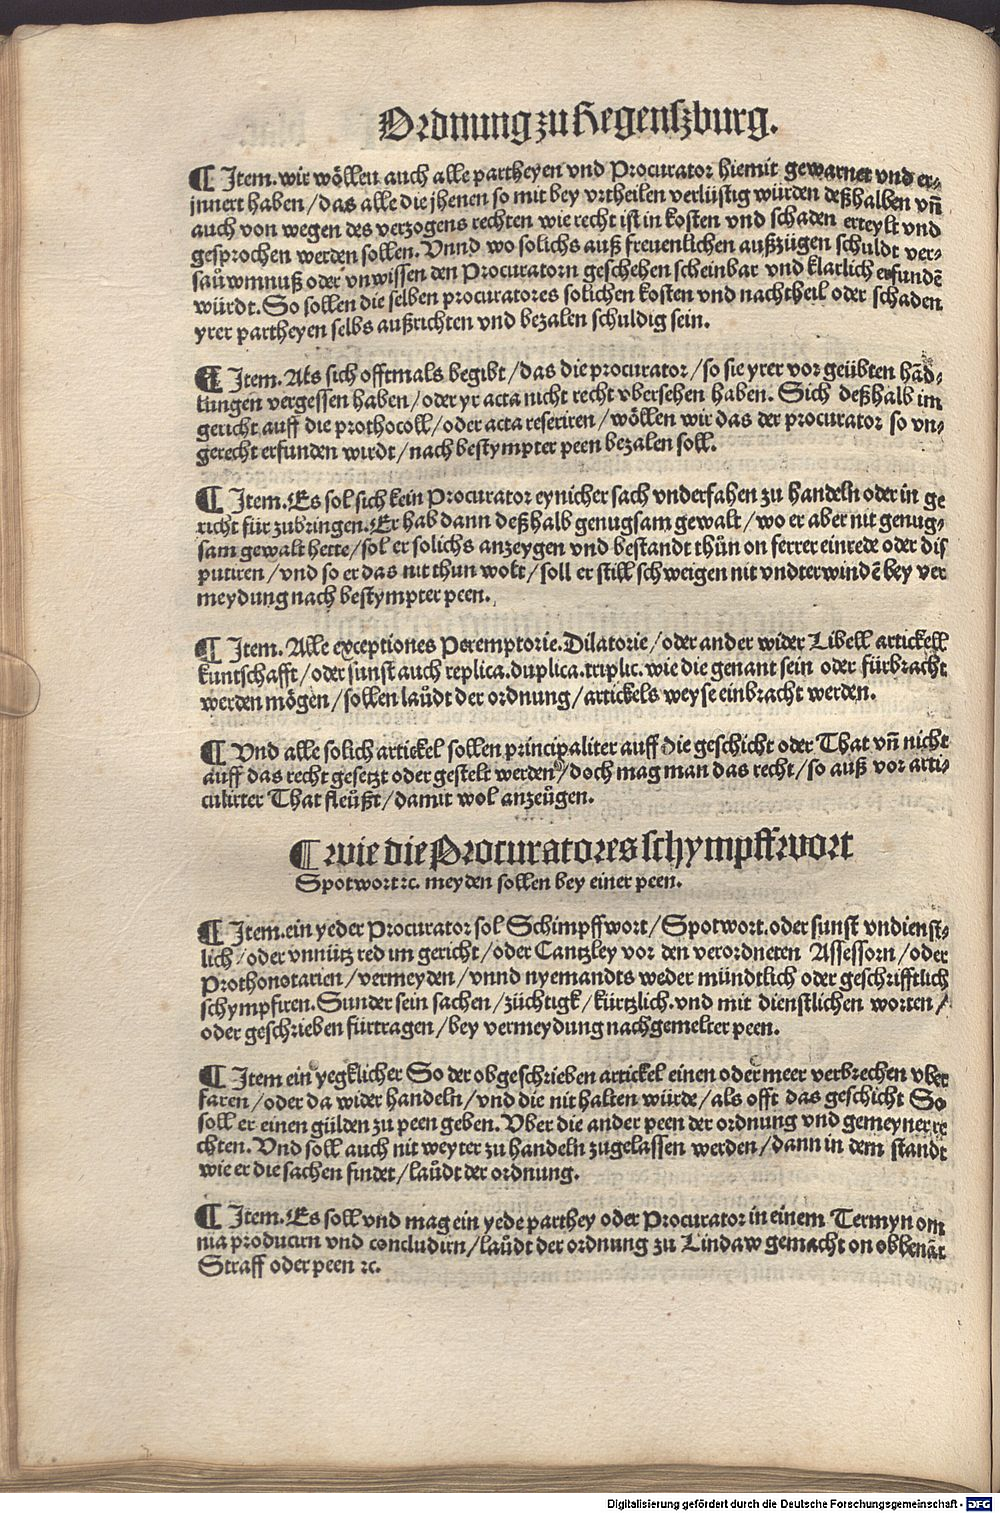 Ordnung zu Regenszburg.
¶ Item. wir wöllen auch alle partheyen vnd Procurator hiemit gewarnet vnd er⸗
innert haben / das alle die jhenen so mit bey vrtheilen verlüstig würden deßhalben vñ
auch von wegen des verzogens rechten wie recht ist in kosten vnd schaden erteylt vnd
gesprochen werden sollen. Vnnd wo solichs auß freuenlichen außzügen schuldt ver⸗
saůwmnuß oder vnwissen den Procuratorn geschehen scheinbar vnd klarlich erfundẽ
würdt. So sollen die selben procuratores solichen kosten vnd nachtheil oder schaden
yrer partheyen selbs außrichten vnd bezalen schuldig sein.
¶ Item. Als sich offtmals begibt / das die procurator / so sie yrer vor geübten hãd⸗
lungen vergessen haben / oder yr acta nicht recht vbersehen haben. Sich deßhalb im
gericht auff die prothocoll / oder acta referiren / wöllen wir das der procurator so vn⸗
gerecht erfunden wirdt / nach bestympter peen bezalen soll.
¶ Item. Es sol sich kein Procurator eynicher sach vnderfahen zu handeln oder in ge
richt für zubringen. Er hab dann deßhalb genugsam gewalt / wo er aber nit genug⸗
sam gewalt hette / sol er solichs anzeygen vnd bestandt thůn on ferrer einrede oder dis
putiren / vnd so er das nit thun wolt / soll er still schweigen nit vndterwindẽ bey ver
meydung nach bestympter peen.
¶ Item. Alle exceptiones Peremptorie. Dilatorie / oder ander wider Libell artickell
kuntschafft / oder sunst auch replica. duplica. triplic. wie die genant sein oder fürbracht
werden mögen / sollen laůdt der ordnung / artickels weyse einbracht werden.
¶ Vnd alle solich artickel sollen principaliter auff die geschicht oder That vñ nicht
auff das recht gesetzt oder gestelt werden / doch mag man das recht / so auß vor arti⸗
culirter That fleůßt / damit wol anzeůgen.
¶ wie die Procuratores schympffwort
Spotwort ꝛc. meyden sollen bey einer peen.
¶ Item. ein yeder Procurator sol Schimpffwort / Spotwort. oder sunst vndienst⸗
lich / oder vnnütz red im gericht / oder Cantzley vor den verordneten Assessorn / oder
Prothonotarien / vermeyden / vnnd nyemandts weder mündtlich oder geschrifftlich
schympfiren. Sunder sein sachen / züchtigk / kürtzlich. vnd mit dienstlichen worten /
oder geschrieben fürtragen / bey vermeydung nachgemelter peen.
¶ Item ein yegklicher So der obgeschrieben artickel einen oder meer verbrechen vber
faren / oder da wider handeln / vnd die nit halten würde / als offt das geschicht So
soll er einen gülden zu peen geben. Vber die ander peen der ordnung vnd gemeyner re
chten. Vnd soll auch nit weyter zu handeln zugelassen werden / dann in dem standt
wie er die sachen findet / laůdt der ordnung.
¶ Item. Es soll vnd mag ein yede parthey oder Procurator in einem Termyn om
nia producirn vnd concludirn / laůdt der ordnung zu Lindaw gemacht on obbenãt
Straff oder peen ꝛc.
Digitalisierung gefördert durch die Deutsche Forschungsgemeinschaft - DFG